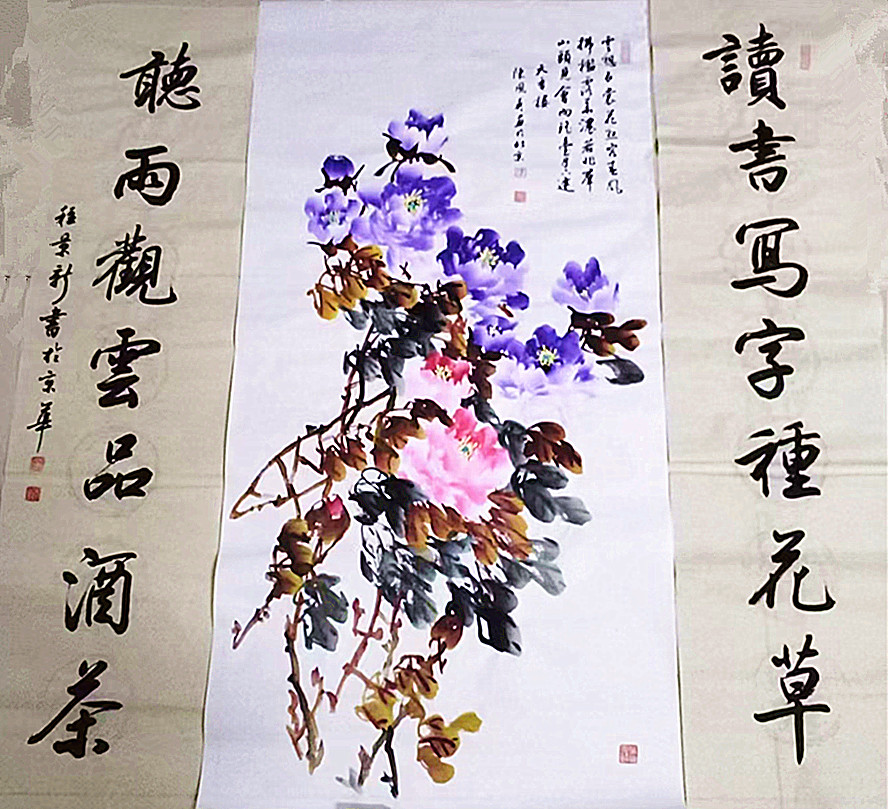 讀書寫字種花草
雲想衣裳花想容春風
拂檻露華濃若非羣
山頭見會向瑤臺月下逢
陳鳳
於北京
聽雨觀雲品酒茶
程景新書於京華